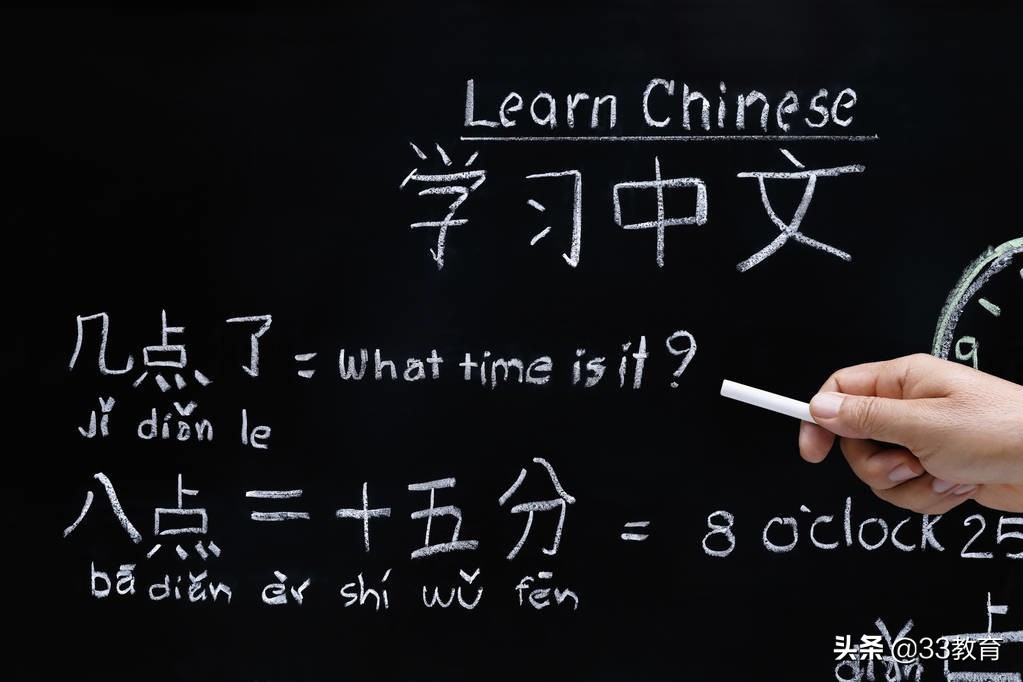 Learn Chinese
学习中文
几点了 = What time is it?
jǐ diǎn le
八点二十五分 = 8 o'clock 25
bā diǎn èr shí wǔ fēn
9
点
diǎn
头条 @33教育